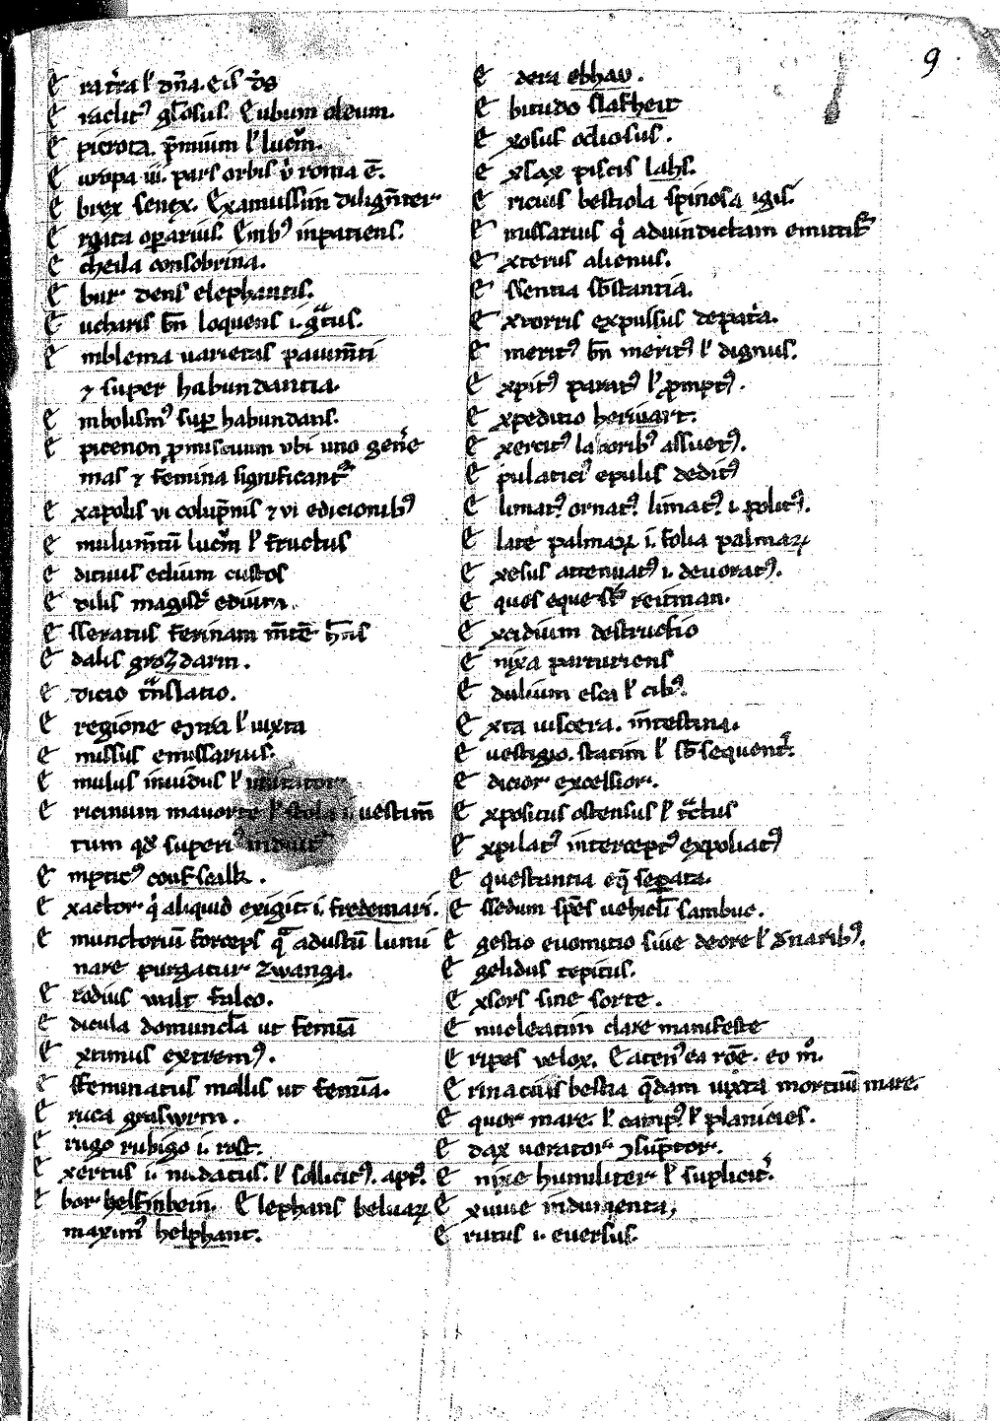 9
E ratra ł dn̄a. Eis dꝰs
E raclitꝰ gl̄osus. Eubum oleum.
E picrota. p̄mium ł lucrͫ.
E uropa iii. pars orbis v̓ roma ē.
E brex senex. Examussim dilign̄ter
E rgata oꝑarius. Enibꝰ inpatiens.
E cheila consobrina.
E bur dens elephantis.
E ucharis bn̄ loquens i. gᵃtus.
E mblema uarietas pauim̄ti
⁊ super habundantia.
E mbolismꝰ suꝑ habundans.
E picenon ꝓmiscuum vbi uno gen̓e
mas ⁊ femina significant᷑
E xapolis vi colūpnis ⁊ vi edicionibꝰ
E mulum̄tū lucrͫ ł fructus
E dituus edium custos
E dilis magistꝰ edium.
E fferatus ferinam m̄tē hn̄s
E dalis groz darm.
E dicio tᵃnslatio.
E regione extra ł iuxta
E missus emissarius.
E mulus inuidus ł
E ricinum mauorte ł stola i. uestim̄
tum qđ superiꝰ
E mpticꝰ couf scalk.
E xactor q̓ aliquid exigit i. fredemari.
E munctoriū forceps qᵃ adustū lumi
nare purgatur zwanga.
E rodius walt falco.
E dicula domuncl̄a ut femīa
E xtimus extremꝰ.
E ffeminatus mollis ut femīa.
E ruca graswrm.
E rugo rubigo i. rost.
E xertus i. nudatus. ł sollicitꝰ. aptꝰ.
E bor helfinbein. Elephans beluaꝝ
maximꝰ helphant.
E dera ebhau.
E bitudo slafheit
E xosus odiosus.
E xsax piscis lahs.
E ricius bestiola spinosa igil.
E missarius q̓ ad uindictam emittit᷑
E xterus alienus.
E ssentia sb̄stantia.
E xtorris expulsus de patͥa.
E meritꝰ bn̄ meritꝰ ł dignus.
E xpitꝰ paratꝰ ł ꝓmptꝰ.
E xpeditio heriuart.
E xercitꝰ laboribꝰ assuetꝰ.
E pulaticiꝰ epulis deditꝰ
E limatꝰ ornatꝰ limatꝰ i. politꝰ.
E late palmaꝝ i. folia palmaꝝ
E xesus attenuatꝰ i. deuoratꝰ.
E ques eque stͬ reitman.
E xcidium destructio
E nixa parturiens
E dulium esca ł cibꝰ.
E xta uiscera. intestina.
E uestigio. statim ł sb̄sequent᷑.
E dicior excelsior.
E xpositus ostensus ł tᵃctus
E xpilatꝰ interceptꝰ expoliatꝰ
E questantia eq̄ seꝑata.
E ssedum spēs uehicl̄i sambuc.
E gestio euomitio siue de ore ł d̓ naribꝰ.
E gelidus tepitus.
E xsors sine sorte.
E nucleatim clare manifeste
E ripes velox. Eatenꝰ ea rōe. eo mͦ.
E rinacius bestia q̄dam iuxta mortuū mare.
E quor mare. ł campꝰ ł planicies.
E dax uorator ꝯsūptor.
E nixe humiliter ł suplicit᷑.
E xuuie indumenta,
E rutus i. euersus.